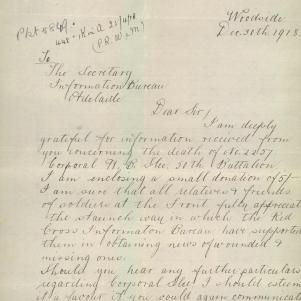 Pkt 8849.
Woodside
Dec. 30th 1918.
To
The Secretary
Information Bureau
Adelaide
Dear Sir,
I am deeply
grateful for information received from
you concerning the death of No 2257
Corporal 50th Battalion.
I am enclosing a small donation of 5/-
I am sure that all relatives & friends
of soldiers at the Front fully appreciate
the staunch way in which the Red
Cross Information Bureau have supported
them in obtaining news of wounded &
missing ones.
Should you hear any further particulars
regarding Corporal I should esteem
it a favour if you could again communicate